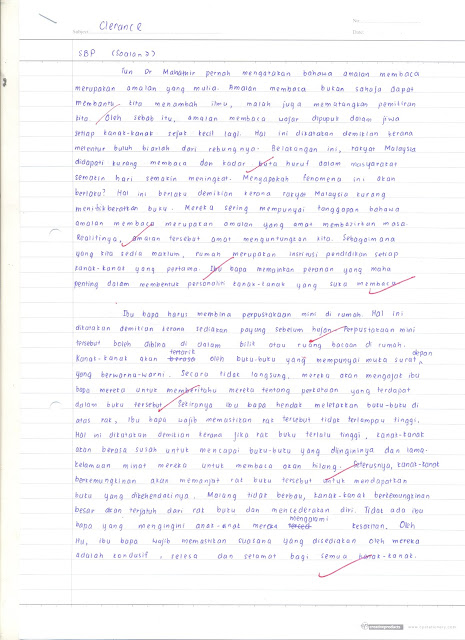 Clerance
No.
Date.
SBP (Soalan 2)
Tun Dr Mahathir pernah mengatakan bahawa amalan membaca
merupakan amalan yang mulia. Amalan membaca bukan sahaja dapat
membantu kita menambah ilmu, malah juga mematangkan pemikiran
kita. Oleh sebab itu, amalan membaca wajar dipupuk dalam jiwa
setiap kanak-kanak sejak kecil lagi. Hal ini dikatakan demikian kerana
melentur buluh biarlah dari rebungnya. Belakangan ini, rakyat Malaysia
didapati kurang membaca dan kadar buta huruf dalam masyarakat
semakin hari semakin meningkat. Mengapakah fenomena ini akan
berlaku? Hal ini berlaku demikian kerana rakyat Malaysia kurang
menitikberatkan buku. Mereka sering mempunyai tanggapan bahawa
amalan membaca merupakan amalan yang amat membazirkan masa.
Realitinya, amalan tersebut amat menguntungkan kita. Sebagaimana
yang kita sedia maklum, rumah merupakan institusi pendidikan setiap
kanak-kanak yang pertama. Ibu bapa memainkan peranan yang maha
penting dalam membentuk personaliti kanak-kanak yang suka membaca.
Ibu bapa harus membina perpustakaan mini di rumah. Hal ini
dikatakan demikian kerana sediakan payung sebelum hujan. Perpustakaan mini
tersebut boleh dibina di dalam bilik atau ruang bacaan di rumah.
Kanak-kanak akan tertarik oleh buku-buku yang mempunyai muka surat depan
yang berwarna-warni. Secara tidak langsung, mereka akan mengajak ibu
bapa mereka untuk memberitahu mereka tentang perkataan yang terdapat
dalam buku tersebut. Sekiranya ibu bapa hendak meletakkan buku-buku di
atas rak, ibu bapa wajib memastikan rak tersebut tidak terlampau tinggi.
Hal ini dikatakan demikian kerana jika rak buku terlalu tinggi, kanak-kanak
akan berasa susah untuk mencapai buku-buku yang diingininya dan lama-
kelamaan minat mereka untuk membaca akan hilang. Seterusnya, kanak-kanak
berkemungkinan akan memanjat rak buku tersebut untuk mendapatkan
buku yang dikehendakinya. Malang tidak berbau, kanak-kanak berkemungkinan
besar akan terjatuh dari rak buku dan mencederakan diri. Tidak ada ibu
bapa yang mengingini anak-anak mereka mengalami kesakitan. Oleh
itu, ibu bapa wajib memastikan suasana yang disediakan oleh mereka
adalah kondusif, selesa dan selamat bagi semua kanak-kanak.